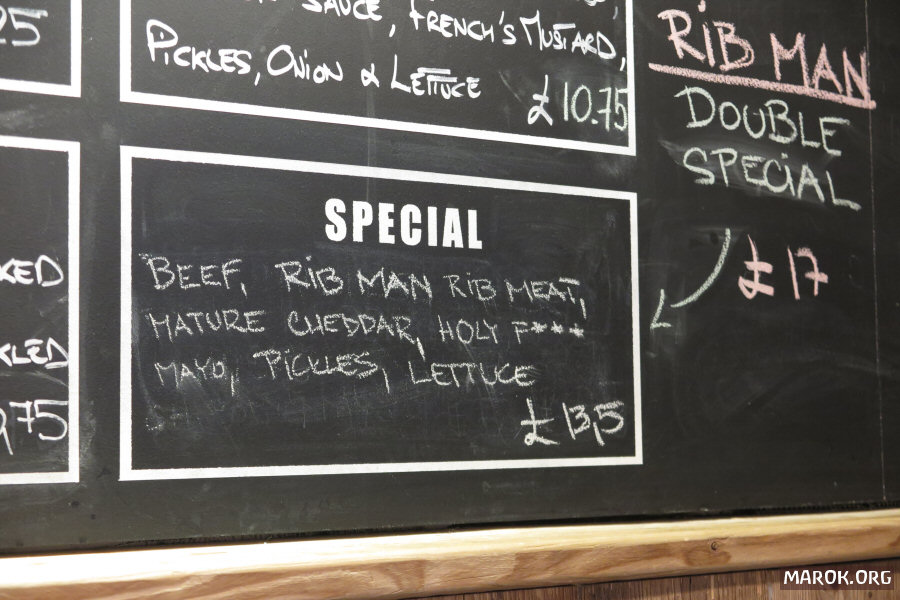 25
SAUCE, FRENCH'S MUSTARD,
PICKLES, ONION & LETTUCE
£10.75
RIB MAN
DOUBLE
SPECIAL
£17
SPECIAL
BEEF, RIB MAN RIB MEAT,
MATURE CHEDDAR, HOLY F***
MAYO, PICKLES, LETTUCE
£13,5
KED
KLED
,75
MAROK.ORG